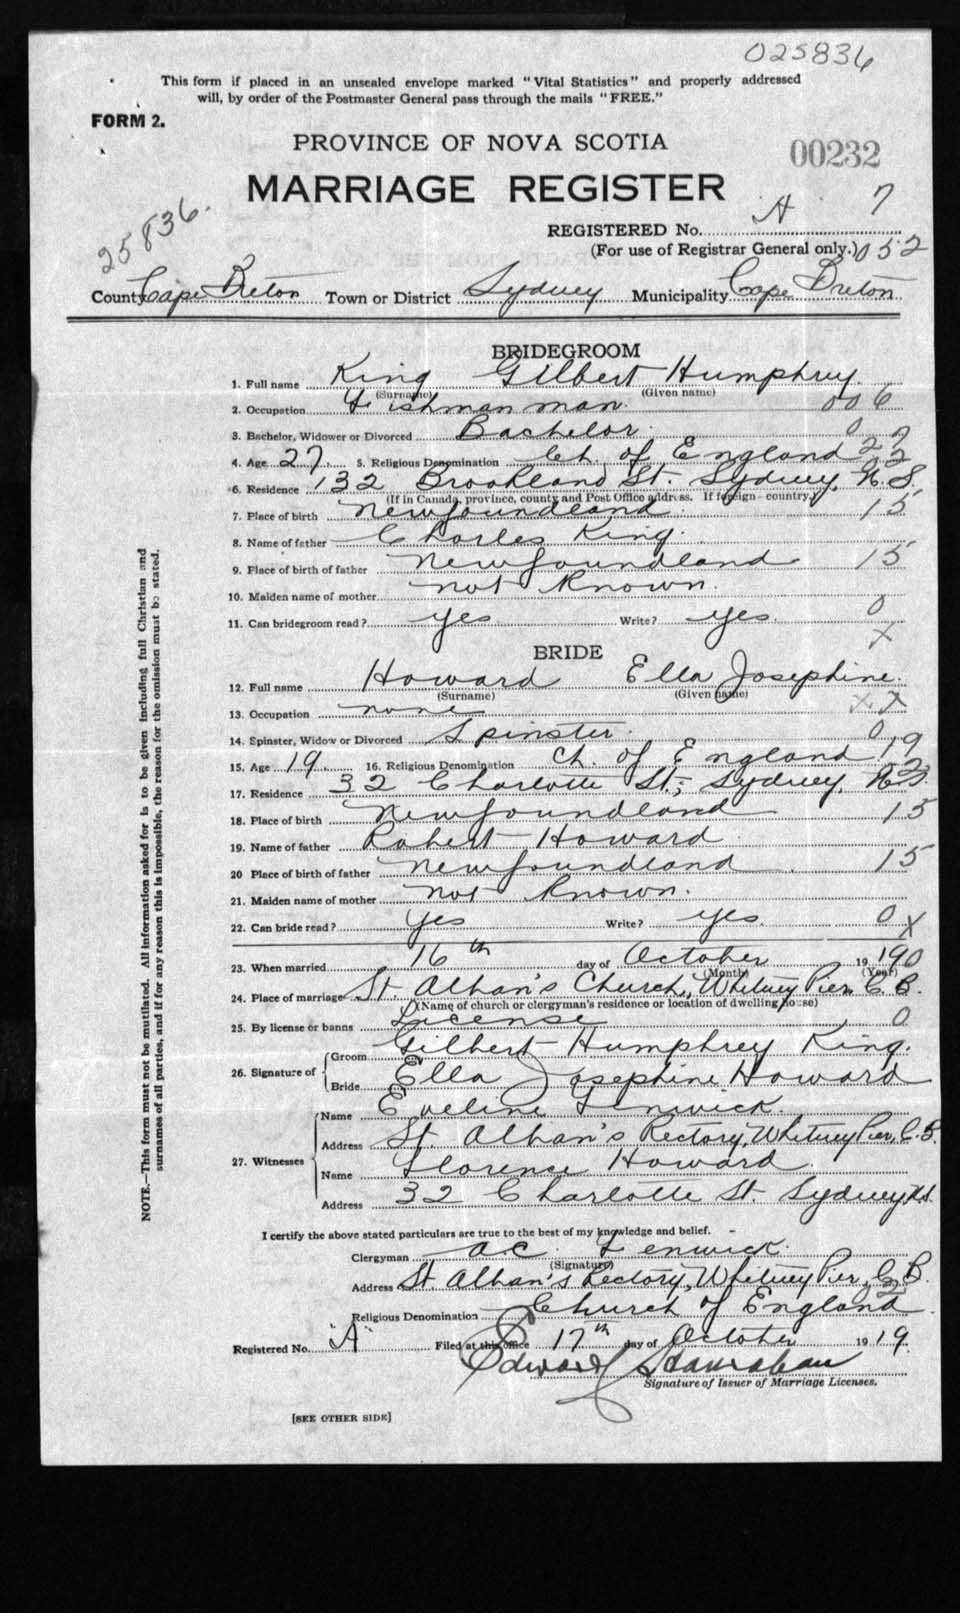 025836
This form if placed in an unsealed envelope marked "Vital Statistics" and properly addressed
will, by order of the Postmaster General pass through the mails "FREE."
FORM 2.
PROVINCE OF NOVA SCOTIA
00232
MARRIAGE REGISTER
25836.
REGISTERED No. A 7
(For use of Registrar General only.) 052
County Cape Breton Town or District Sydney Municipality Cape Breton
BRIDEGROOM
1. Full name King Gilbert Humphrey
(Surname) (Given name)
2. Occupation Fishman man. 006
3. Bachelor, Widower or Divorced Bachelor. 0
4. Age 27 5. Religious Denomination Ch. of England 27
6. Residence 132 Brookland St. Sydney, N.S. 2
(If in Canada, province, county and Post Office address. If foreign country.)
7. Place of birth Newfoundland. 15
8. Name of father Charles King.
9. Place of birth of father Newfoundland 15
10. Maiden name of mother not Known.
11. Can bridegroom read? yes Write? yes. 0
x
BRIDE
12. Full name Howard Ella Josephine.
(Surname) (Given name)
13. Occupation none x x
14. Spinster, Widow or Divorced Spinster. 0
15. Age 19 16. Religious Denomination Ch. of England 19
17. Residence 32 Charlotte St., Sydney, N.S. 2
18. Place of birth Newfoundland 15
19. Name of father Robert Howard
20 Place of birth of father Newfoundland 15
21. Maiden name of mother not Known.
22. Can bride read? yes Write? yes. 0 x
23. When married 16th day of October 19 190
(Month) (Year)
24. Place of marriage St. Alban's Church, Whitney Pier, C.B.
(Name of church or clergyman's residence or location of dwelling house)
25. By license or banns License 0
26. Signature of Groom Gilbert Humphrey King.
Bride Ella Josephine Howard
27. Witnesses Name Eveline Fenwick.
Address St. Alban's Rectory, Whitney Pier, C.B.
Name Florence Howard.
Address 32 Charlotte St. Sydney N.S.
I certify the above stated particulars are true to the best of my knowledge and belief.
Clergyman A C. Fenwick.
(Signature)
Address St. Alban's Rectory, Whitney Pier, C.B.
Religious Denomination Church of England 2
Registered No. "A" Filed at this office 17th day of October 19 19.
Edward
Signature of Issuer of Marriage Licenses.
[SEE OTHER SIDE]
NOTE.—This form must not be mutilated. All information asked for is to be given including full Christian and
surnames of all parties, and if for any reason this is impossible, the reason for the omission must be stated.